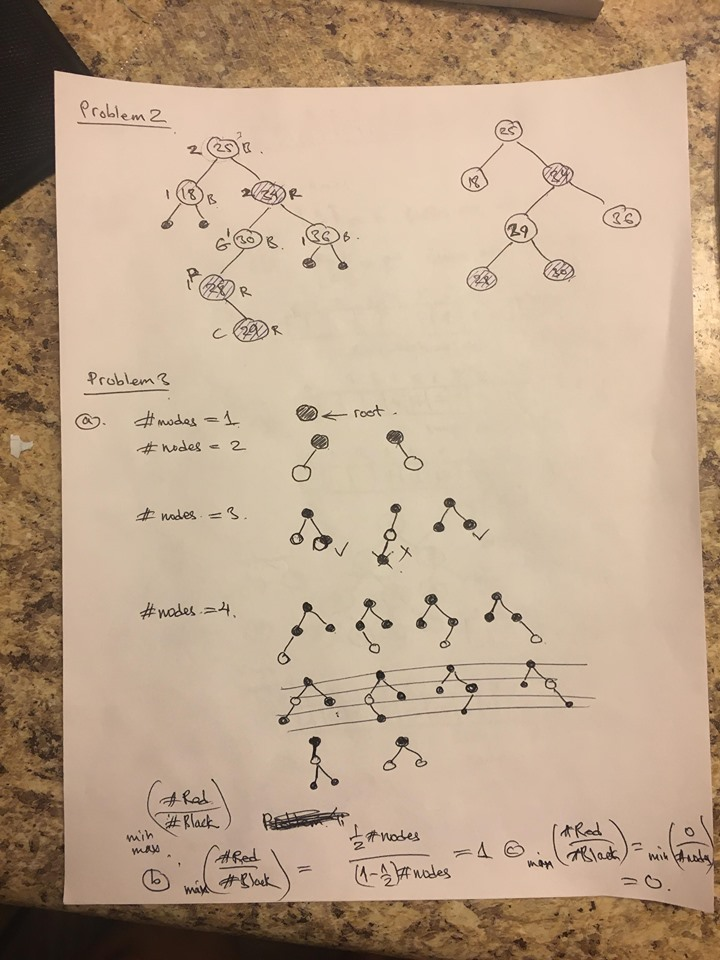 Problem 2
2 25 B.
25
1 18 B
2 34 R
18
34
G 1 30 B.
1 36 B.
29
36
R
1 28 R
28
30
C 29 R
Problem 3
a. # nodes = 1 ← root.
# nodes = 2
# nodes = 3.
# nodes = 4.
(# Red / # Black)
min
max
b max (# Red / # Black) = ½ # nodes / (1-½) # nodes = 1 c min (# Red / # Black) = min (0 / # nodes)
= 0.